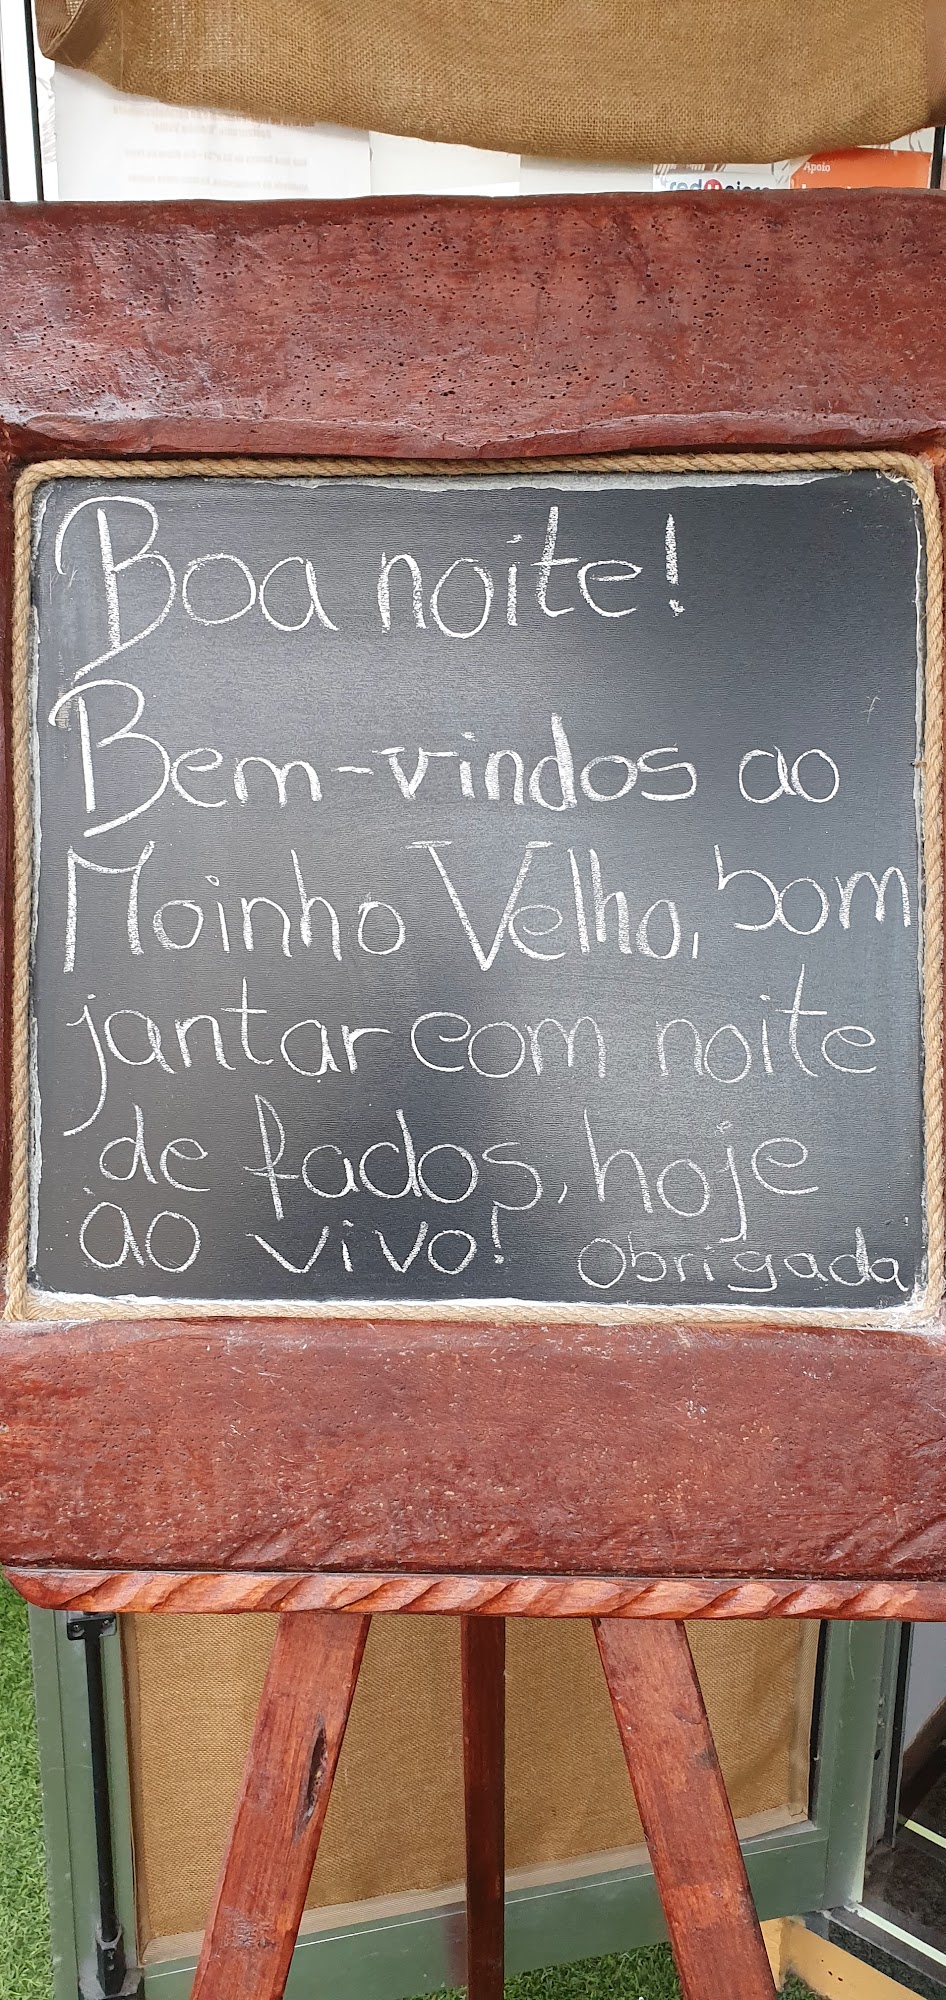 Apoio
Boa noite!
Bem-vindos ao
Moinho Velho, bom
jantar com noite
de fados, hoje
ao vivo! Obrigada